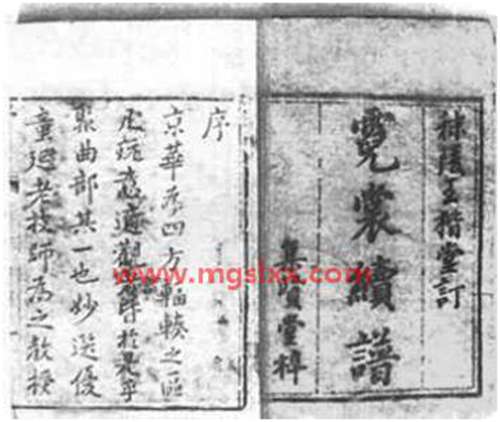 秣陵王楷堂訂
霓裳續譜
集賢堂梓
序
京華為四方輻輳之區
凡玩意適觀者於是乎
聚曲部其一也妙選優
童延老技師為之教授
www.mgslxx.com